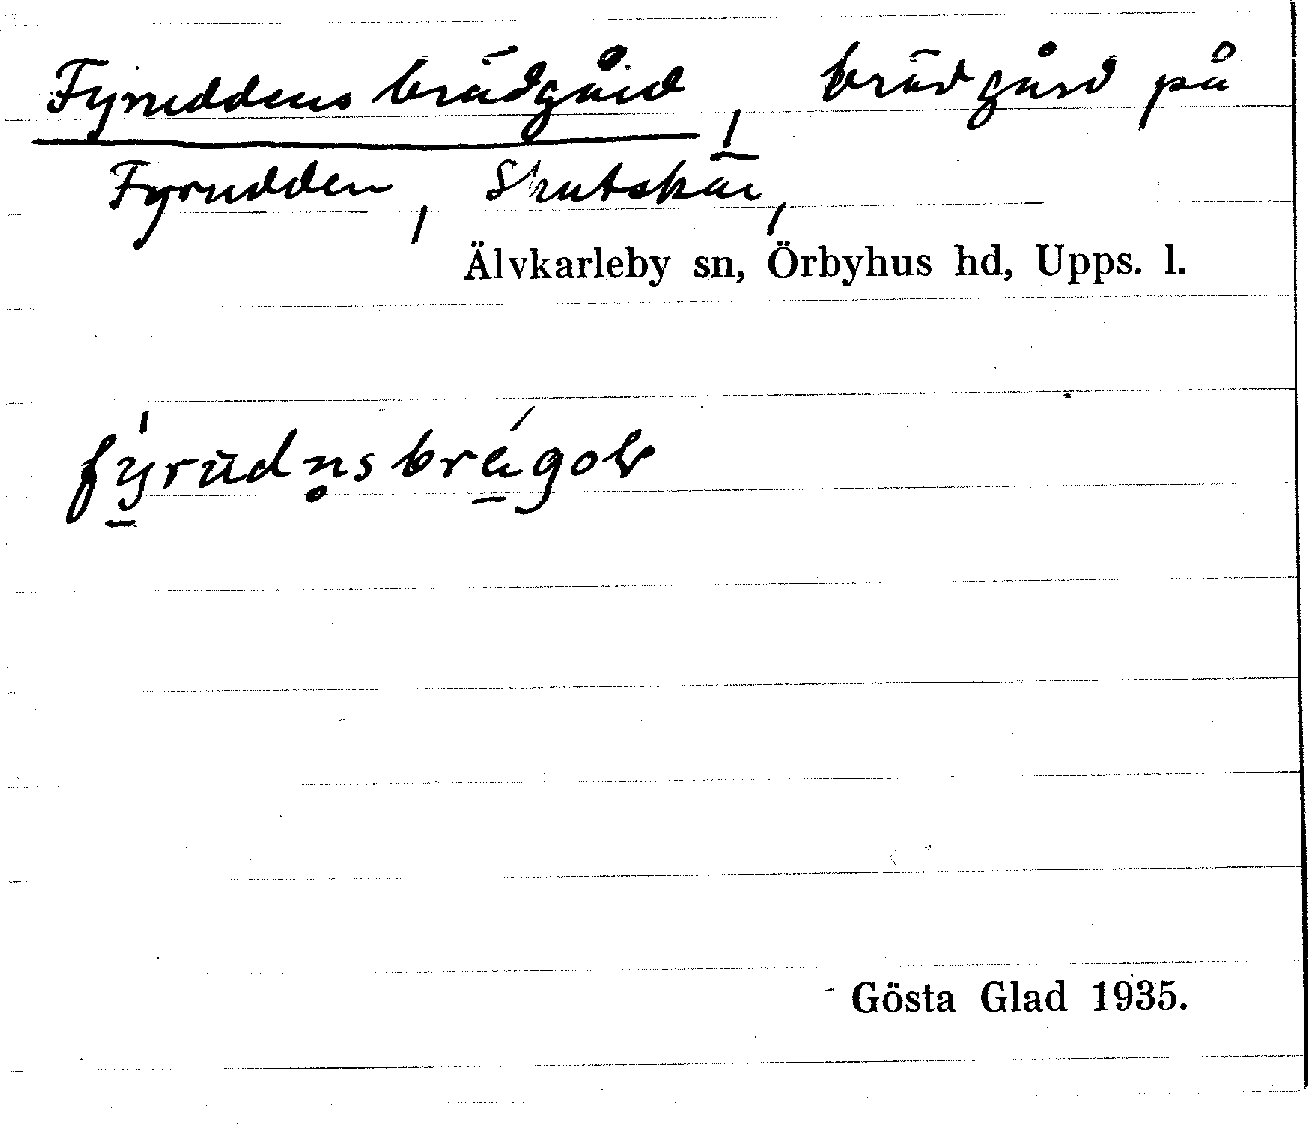 Fyruddens brädgård, brädgård på
Fyrudden, Skutskär,
Älvkarleby sn, Örbyhus hd, Upps. l.
Gösta Glad 1935.